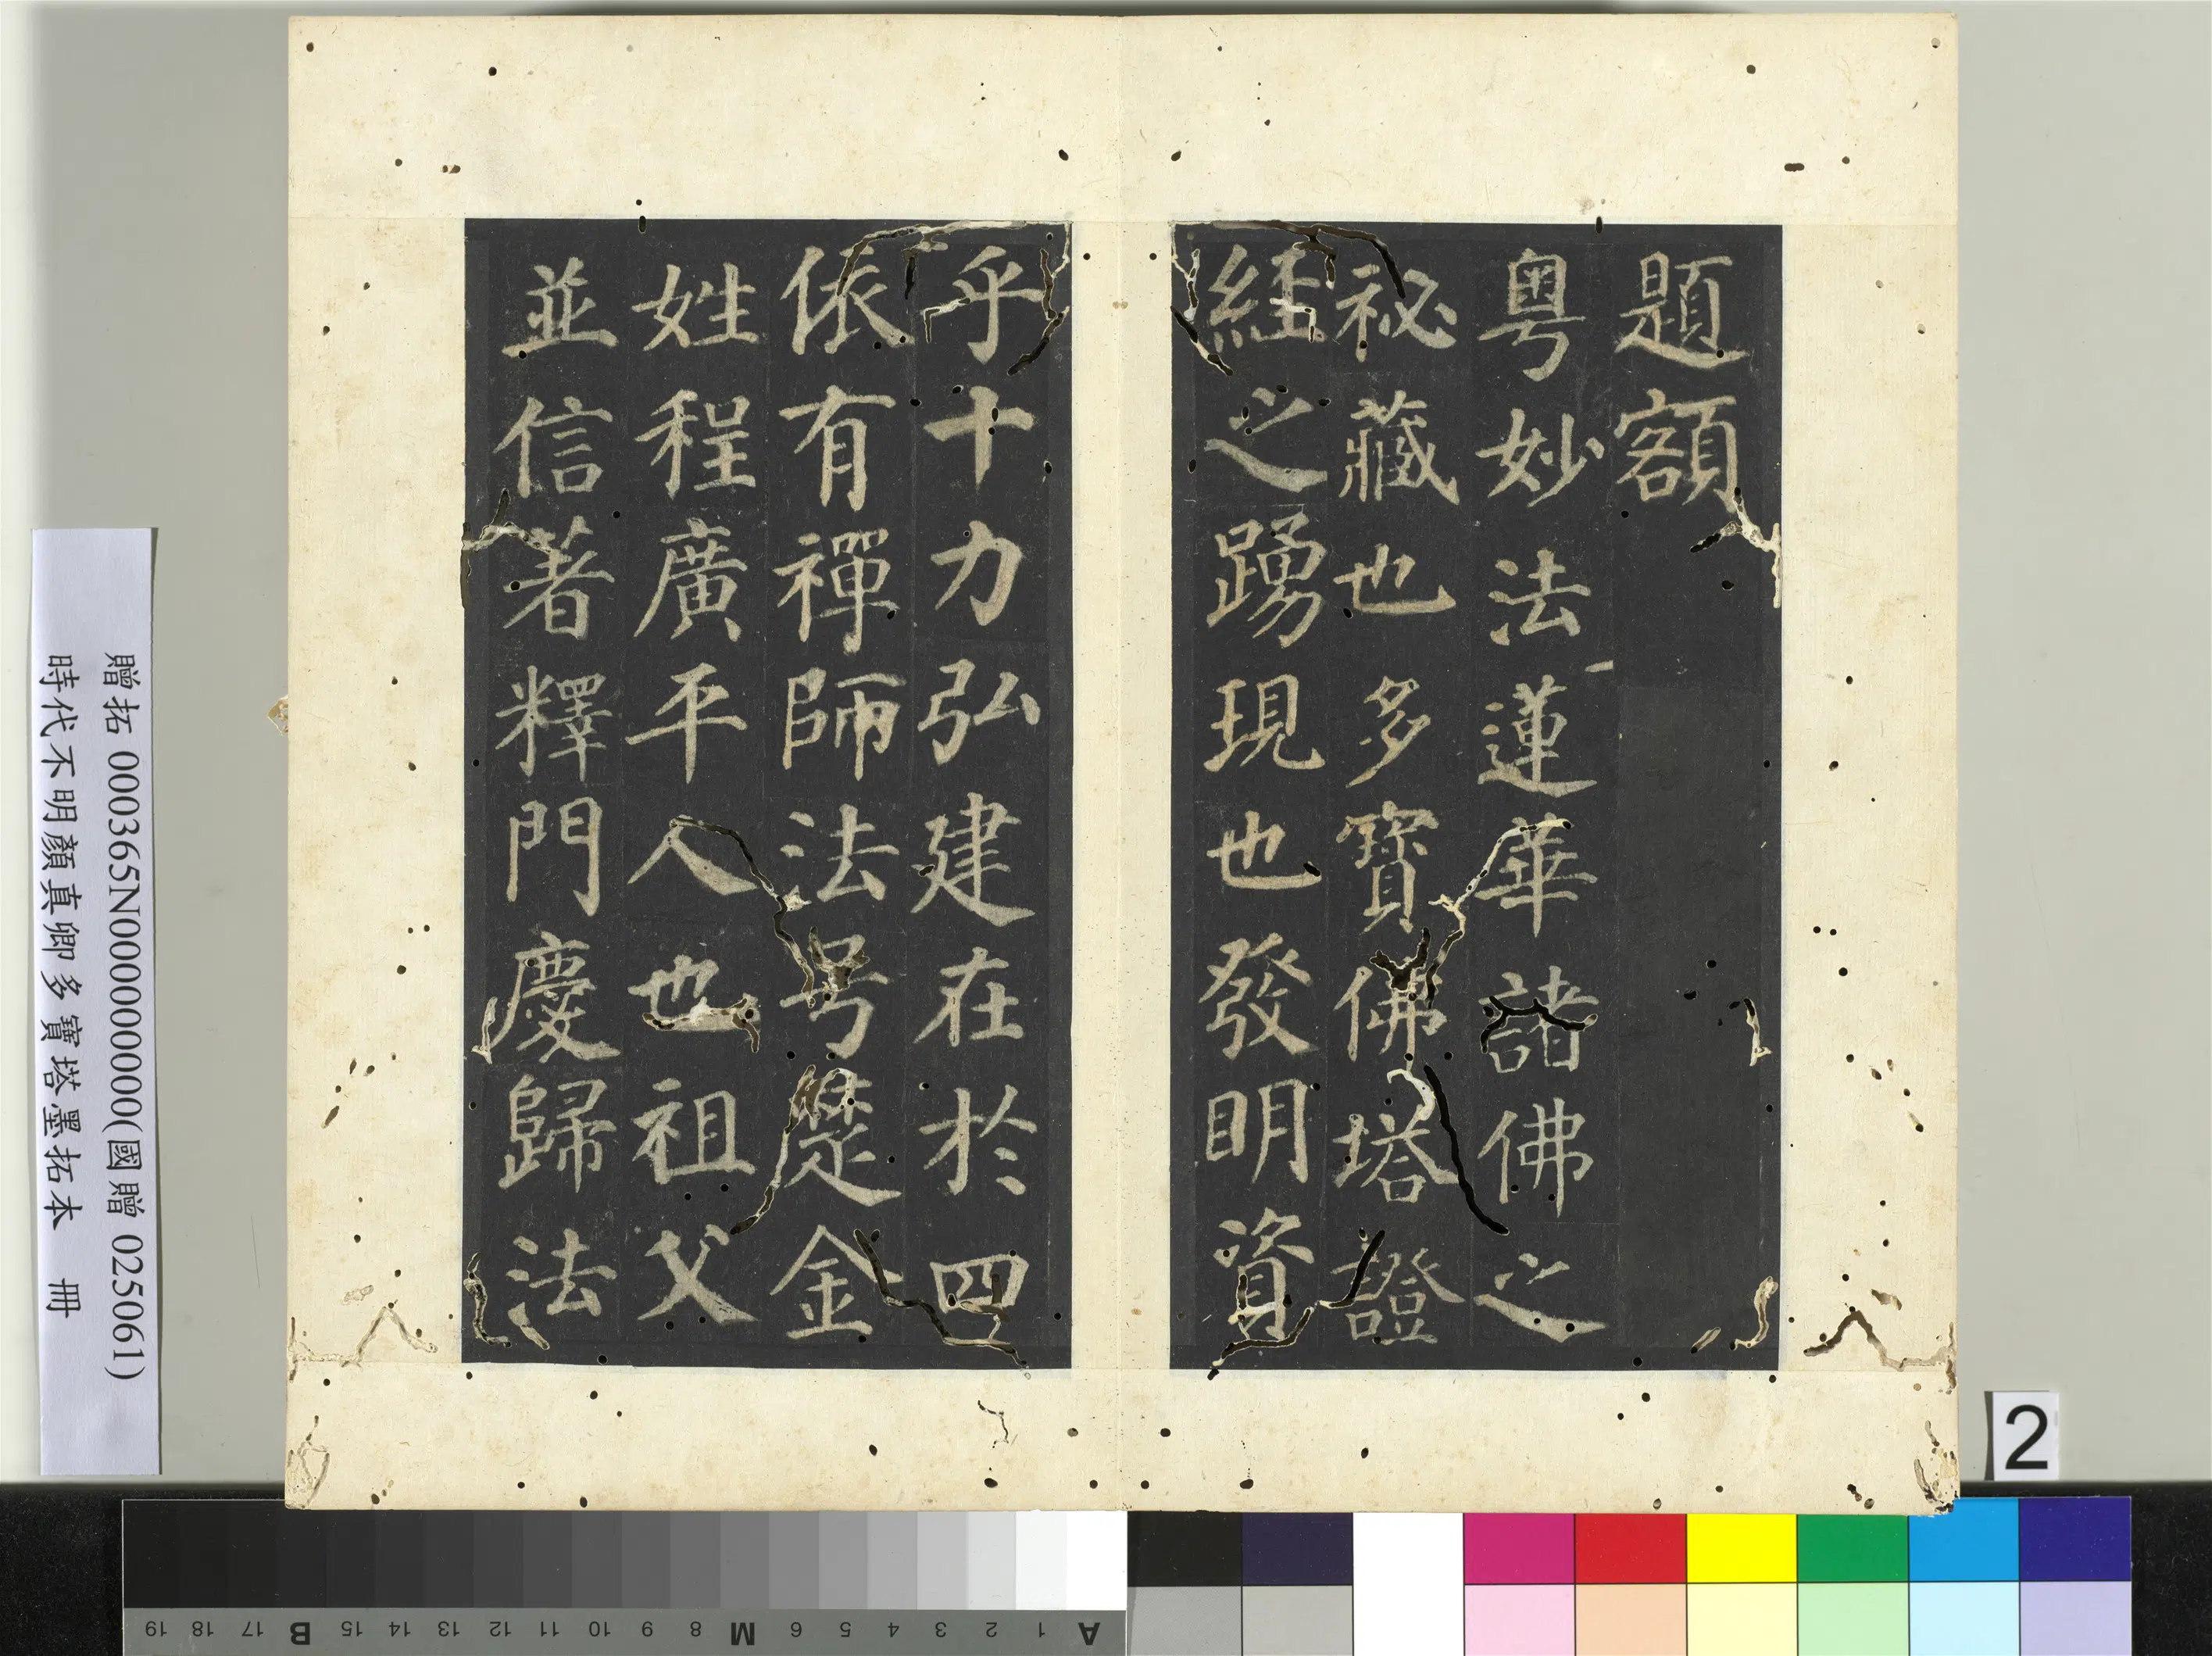 題額
粵妙法蓮華諸佛之
祕藏也多寶佛塔證
經之踴現也發明資
乎十力弘建在於四
依有禪師法号楚金
姓程廣平人也祖父
並信著釋門慶歸法
贈拓 000365N000000000(國贈 025061)
時代不明顏真卿多寶塔墨拓本 冊
2
A 1 2 3 4 5 6 M 8 9 10 11 12 13 14 15 B 17 18 19